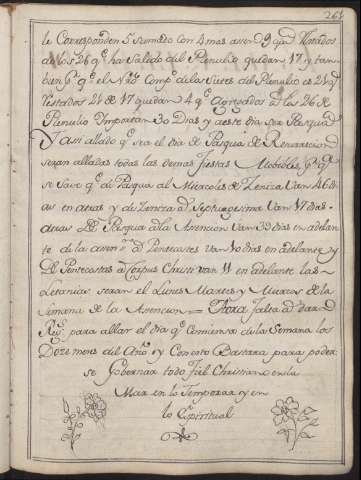 261
le Corresponden 5 sumado con 4 mas
de los 26 q.e ha salido del Plenulio quedan 17 y tam-
bien p.r q.e el de las Suertes del Plenulio es 21 q.e
restados 21 de 17 quedan 4 q.e agregados a los 26 de
Plenulio Importan 30 Dias y aeste dia sera Pasqua
Y asi allado q.e sea el dia de Pasqua de Resurreccion
seran alladas todas las demas fiestas Mobibles p.r q.e
se save q.e de Pasqua al Miercoles de Zeniza Van 46 di-
as en atras y de Zeniza a Septuagesima Van 17 dias
atras De Pasqua ala Asencion van 39 dias en adelan-
te de la asen.on a Pentecostes van 10 dias en adelante y
De Pentecostes a Corpus Christi van 11 en adelante las
Letanias seran el Lunes Martes y Miercoles de la
Semana de la Asencion = Aora falta a dar
Reg.s para allar el dia q.e Comienza de la Semana los
Doze meses del Año, y Con esto Bastara para poder
se Gobernar todo fiel Christiano en la
Mar en lo Temporar y en
lo Espiritual